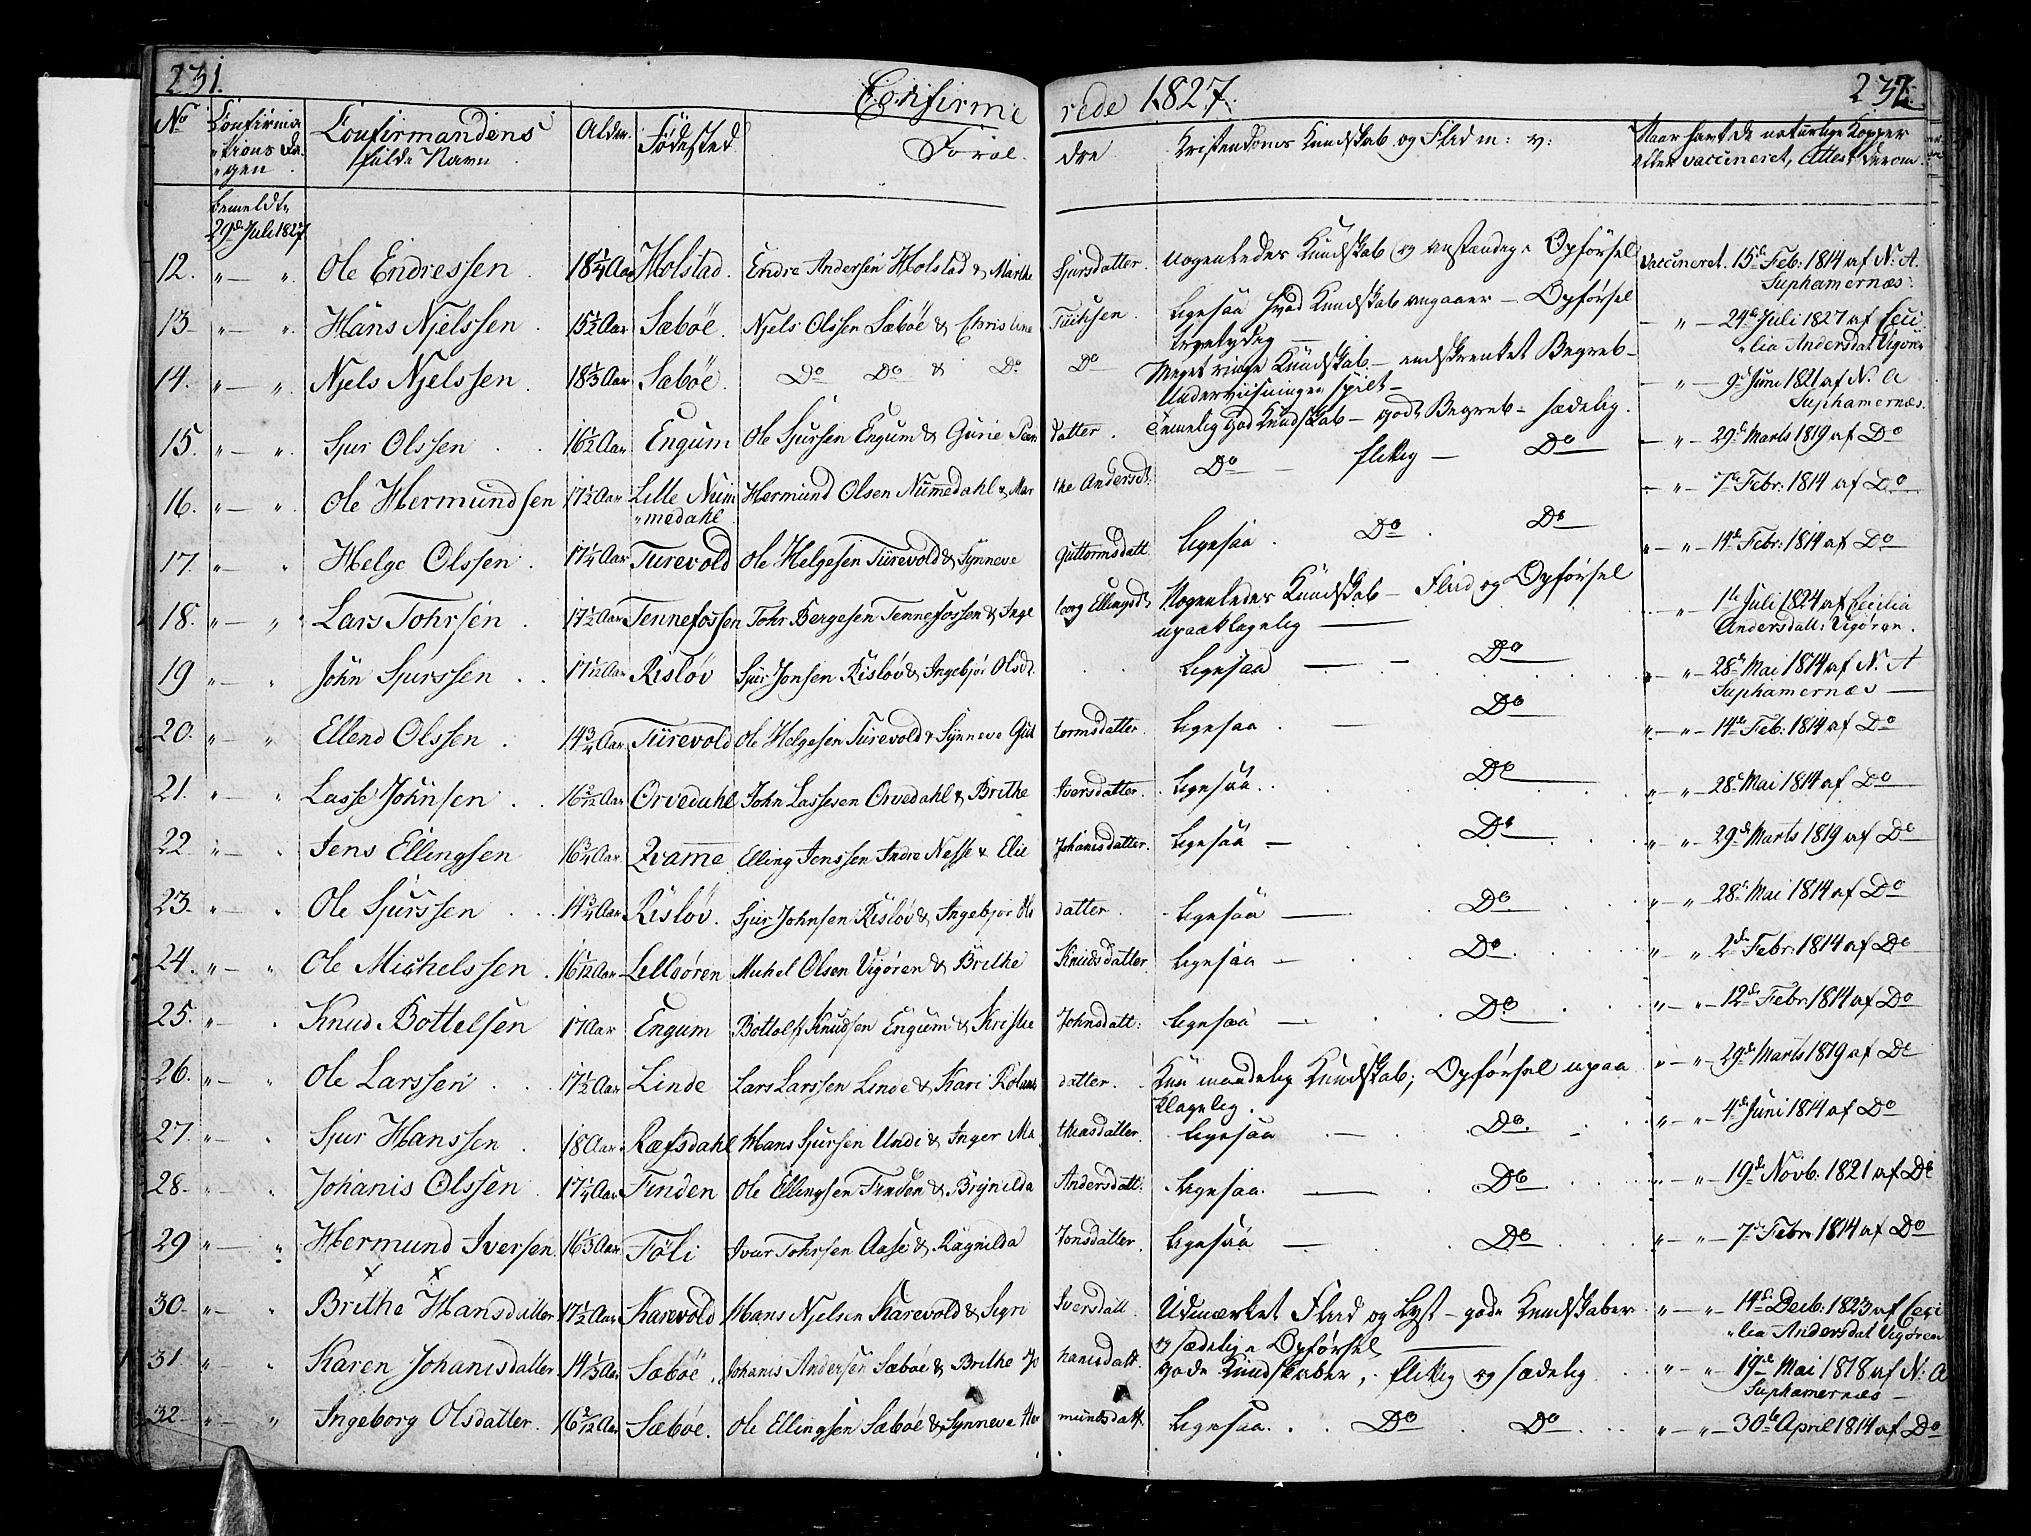 231.
Confirme
rede 1827.
232.
No
Confirma
tions Da
gen
Confirmandens
fulde Navn
Alder
Födested
Foræl
dre
Kristendoms Kundskab og Flid m: v:
Naar havt de naturlige Kopper
eller vaccineret, Attest derom.
bemeldte
29de Juli 1827
12. " — " Ole Endressen 18 1/4 Aar Holstad. Endre Andersen Holstad & Marthe Sjursdatter. Nogenledes Kundskab og anstændige Opförsel vaccineret. 15de Feb: 1814 af N: A.
Suphamernæs:
13 " — " Hans Njelssen 15 1/2 Aar Sæböe. Njels Olssen Sæböe & Christine Tüchsen. Ligesaa hvad Kundskab angaaer — Opförsel — " — 24de Juli 1827 af Ceci
tvetydig — lia Andersdat Vigören
14. " — " Njels Njelssen. 18 1/3 Aar Sæböe. Do Do & Do Do Meget ringe Kundskab — indskrenket Begreb — — " — 9de Juni 1821 af N. A
Underviisningen spilt — Suphamernæs.
15. " — " Sjur Olssen 16 1/2 Aar Engum Ole Sjursen Engum & Gurie datter. Temmelig god Kundskab — godt Begreb — sædelig. — " — 29de Marts 1819 af Do
16. " — " Ole Hermundsen 17 1/2 Aar Lille Num Hermund Olsen Nummedahl & Mar the Andersd: Do — flittig — Do — " — 7de Febr: 1814 af Do
medahl
17. " — " Helge Olssen 17 1/4 Aar Turevold Ole Helgesen Turevold & Synneve Guttormsdatt. Ligesaa Do Do " — " — 14de Febr: 1814 af Do
18. " — " Lars Tohrsen 17 1/2 Aar Tennefossen Tohr Bergesen Tennefossen & Inge borg Ellingsd: Nogenledes Kundskab — Flid og Opförsel " 1te Juli 1824 af Cecilia
upaaklagelig — Andersdatt: Vigören.
19 " — " John Sjurssen 17 1/12 Aar Rislöv Sjur Jonsen Rislöv & Ingebjör Olsd. Ligesaa — — Do " — " — 28de Mai 1814 af N. A
Suphamernæs —
20. " — " Ellend Olssen 14 3/4 Aar Turevold Ole Helgesen Turevold & Synneve Gut tormsdatter. Ligesaa — Do " — " — 14de Feb: 1814 af Do
21. " — " Lasse Johnsen Orvedahl John Lassesen Orvedahl & Brithe Iversdatter. Ligesaa Do " — " — 28de Mai 1814 af Do
22 " — " Jens Ellingsen 16 3/4 Aar Qvamme Elling Jenssen Indre Nesse & Elie Johanisdatter. Ligesaa — Do " — " — 29de Marts 1819 af Do
23. " — " Ole Sjurssen 14 3/4 Aar Rislöv. Sjur Johnsen Rislöv & Ingebjör Ols datter. Ligesaa — Do " — " — 28de Mai 1814 af Do
24. " — " Ole Michelssen 16 1/12 Aar Lelleören Michel Olsen Vigören & Brithe Knudsdatter. Ligesaa — Do " — " — 2de Febr: 1814 af Do
25. " — " Knud Bottelsen 17 Aar Engum Bottolf Knudsen Engum & Kristie Johnsdatt: Ligesaa — Do " — " — 12de Febr: 1814 af Do
26. " — " Ole Larssen 17 1/2 Aar Linde Lars Larssen Linde & Kari datter. Kun maadelig Kundskab; Opförsel upaa " — " — 29de Marts 1819 af Do
klagelig.
27. " — " Sjur Hanssen 18 Aar Ræfsdahl Hans Sjursen Unde & Inger Ma thiasdatter. Ligesaa — Do — " — " — 4de Juni 1814 af Do
28. " — " Johanis Olssen 17 1/4 Aar Finden Ole Ellingsen Finden & Brynilda Andersdatt: Ligesaa. — Do " — " — 19de Novb. 1821 af Do
29 " — " Hermund Iversen 16 1/3 Aar Föli Ivar Tohrsen Aase & Ragnilda Jonsdatter. Ligesaa — Do " — " — 7de Febr. 1814 af Do
x x
30. " — " Brithe Hansdatter 17 1/2 Aar Karevold Hans Njelsen Karevold & Sigri Iversdatt. Udmærket Flid og Lyst — gode Kundskaber " — " — 14de Decb: 1823 af Ceci
og sædelige Opförsel — lia Andersdat Vigören
31 " — " Karen Johanisdatter 14 1/3 Aar Sæböe, Johanis Andersen Sæböe & Brithe Jo hanisdatt. gode Kundskaber, flittig og sædelig " — " — 19de Mai 1818 af N: A
Suphamernæs —
32 " — " Ingeborg Olsdatter. 16 2/12 Aar Sæböe. Ole Ellingsen Sæböe & Synneve Her mundsdatt. Ligesaa. Do Do " — " — 30te April 1814 af Do